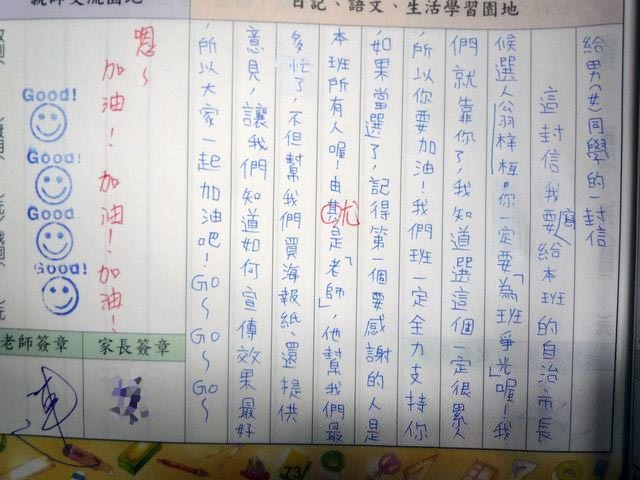 日記、語文、生活學習園地
給男(女)同學的一封信
這封信我要寫給本班的自治市長
候選人翁梓桓。你一定要「為班爭光」喔!我
們就靠你了,我知道選這個一定很累
,所以你要加油!我們班一定全力支持你
,如果當選了,記得第一個要感謝的人是
本班所有人喔!由其尤是「老師」,他幫我們最
多忙了,不但幫我們買海報紙,還提供
意見,讓我們知道如何宣傳效果最好
,所以大家一起加油吧!GO~GO~GO~
嗯~
加油!加油!加油!
Good!
Good!
Good!
Good!
老師簽章
家長簽章
73